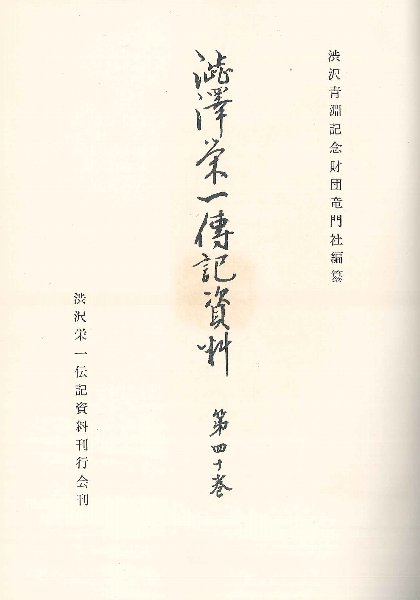 渋沢青淵記念財団竜門社編纂
澁澤栄一傳記資料 第四十巻
渋沢栄一伝記資料刊行会刊